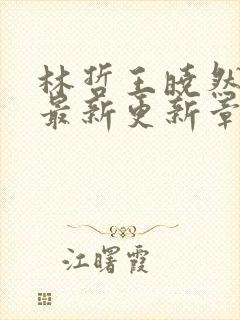 林哲王晓然
最新更新章
江曙霞